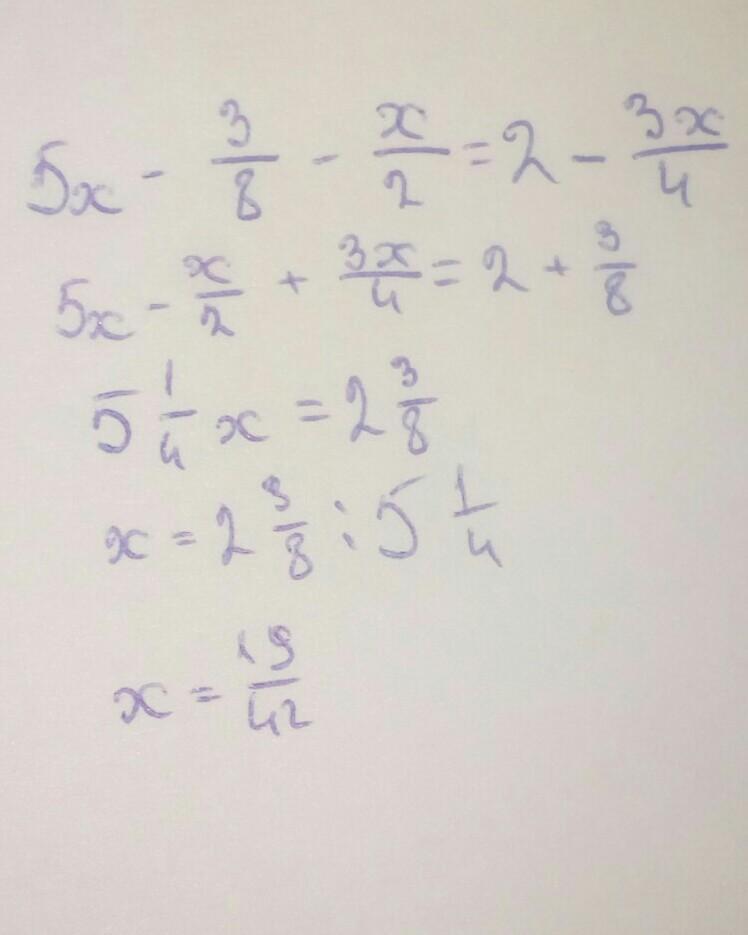 5x - 3/8 - x/2 = 2 - 3x/4
5x - x/2 + 3x/4 = 2 + 3/8
5 1/4 x = 2 3/8
x = 2 3/8 : 5 1/4
x = 19/42